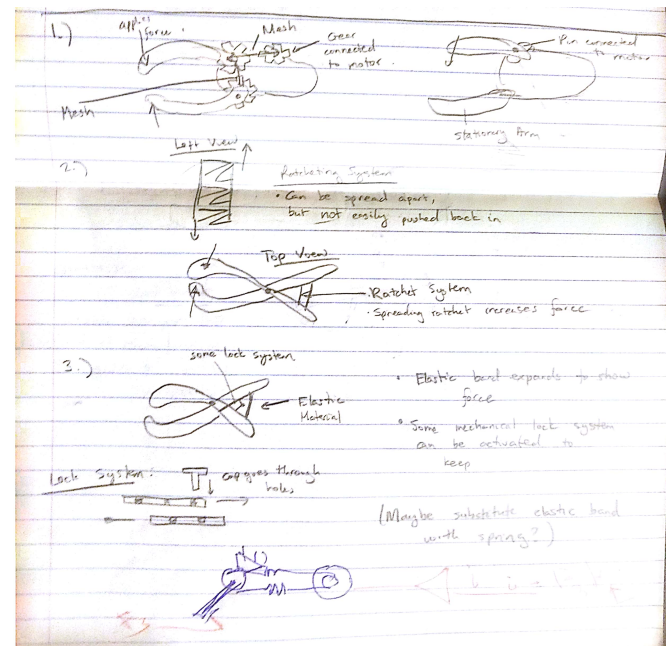 1.)
applies
force
Mesh
Gear
connected
to motor.
Pin connected
to motor
Mesh
stationary Arm
Left View
2.)
Ratcheting System
• Can be spread apart,
but not easily pushed back in
Top View
Ratchet System
• Spreading ratchet increases force
3.)
some lock system
Elastic
Material
• Elastic band expands to show
force
• Some mechanical lock system
can be activated to
keep
Lock System:
cap goes through
holes
(Maybe substitute elastic band
with spring?)